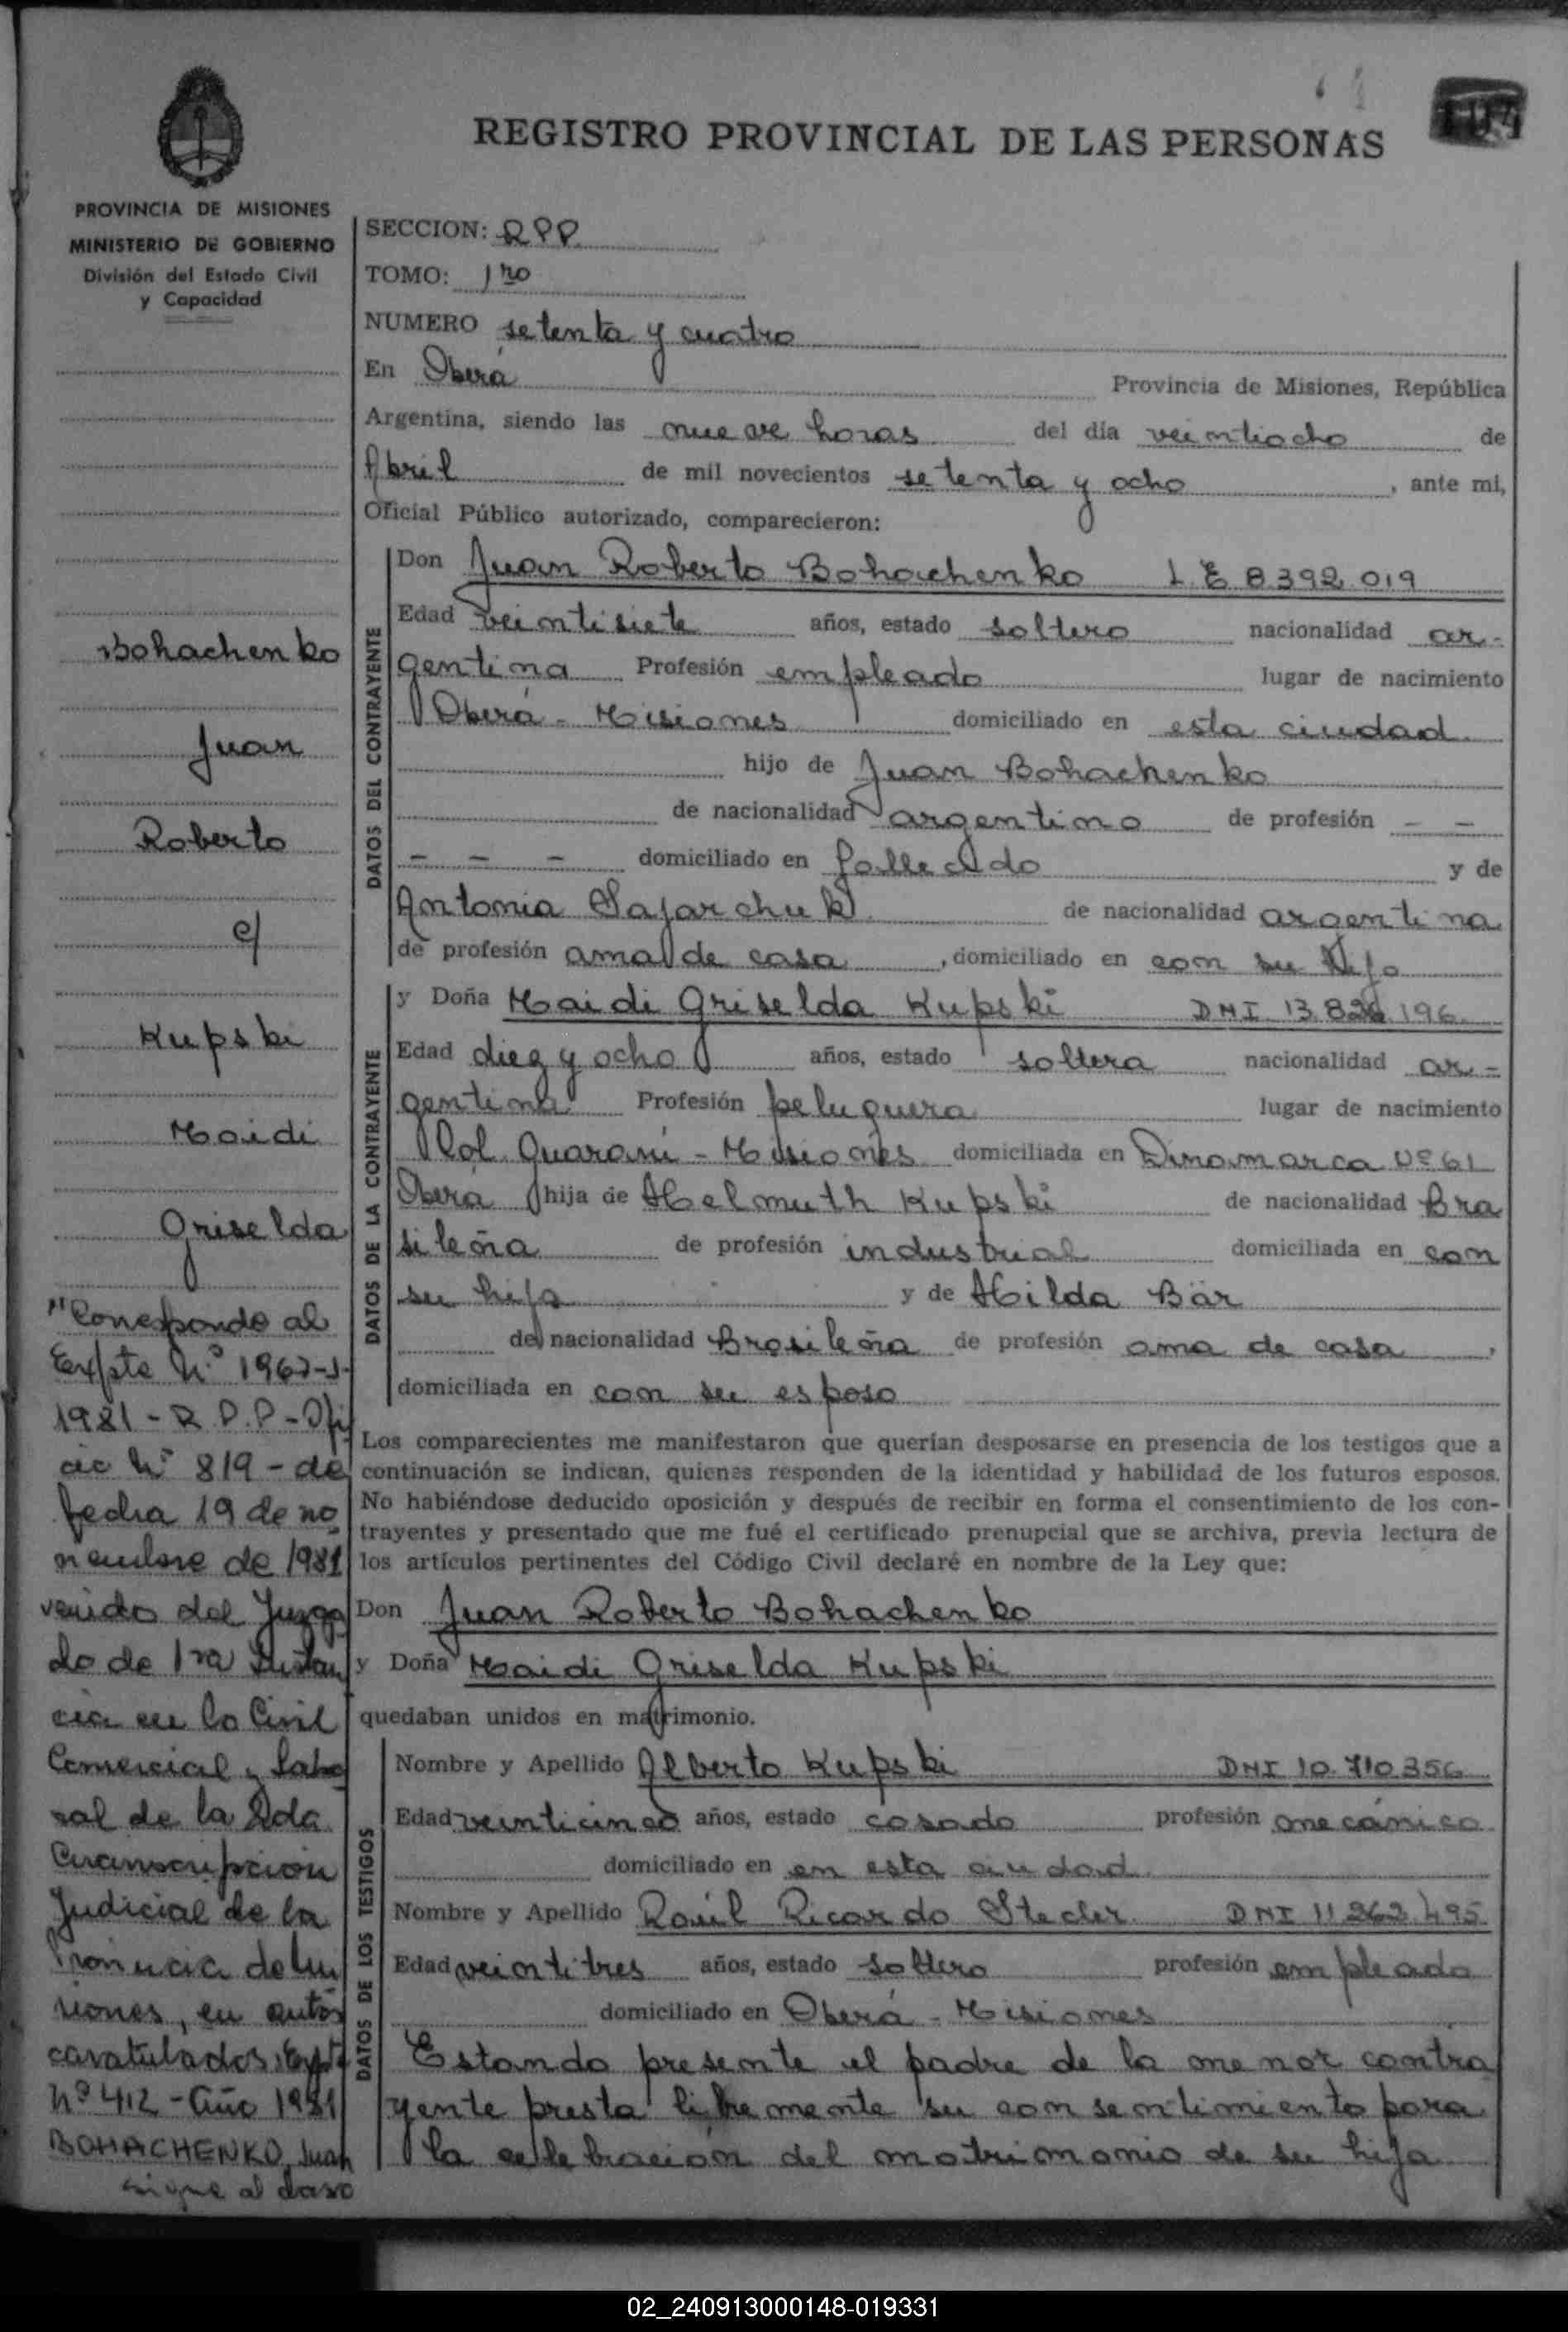 REGISTRO PROVINCIAL DE LAS PERSONAS
104
PROVINCIA DE MISIONES
MINISTERIO DE GOBIERNO
División del Estado Civil
y Capacidad
SECCION: RPP
TOMO: 1ro
NUMERO setenta y cuatro
En Oberá Provincia de Misiones, República
Argentina, siendo las nueve horas del día veintiocho de
Abril de mil novecientos setenta y ocho, ante mi,
Oficial Público autorizado, comparecieron:
DATOS DEL CONTRAYENTE
Don Juan Roberto Bohachenko L.E 8.392.019
Edad veintisiete años, estado soltero nacionalidad ar-
gentina Profesión empleado lugar de nacimiento
Oberá - Misiones domiciliado en esta ciudad
hijo de Juan Bohachenko
de nacionalidad argentino de profesión - -
- - - domiciliado en fallecido y de
Antonia Sajarchuk de nacionalidad argentina
de profesión ama de casa, domiciliado en con su hijo
DATOS DE LA CONTRAYENTE
y Doña Haidi Griselda Kupski DNI 13.826.196
Edad diez y ocho años, estado soltera nacionalidad ar-
gentina Profesión peluquera lugar de nacimiento
Col. Guaraní - Misiones domiciliada en Dinamarca Nº 61
Oberá hija de Helmuth Kupski de nacionalidad Bra
sileña de profesión industrial domiciliada en con
su hija y de Hilda Bär
de nacionalidad Brasileña de profesión ama de casa,
domiciliada en con su esposo
Los comparecientes me manifestaron que querían desposarse en presencia de los testigos que a
continuación se indican, quienes responden de la identidad y habilidad de los futuros esposos.
No habiéndose deducido oposición y después de recibir en forma el consentimiento de los con-
trayentes y presentado que me fué el certificado prenupcial que se archiva, previa lectura de
los artículos pertinentes del Código Civil declaré en nombre de la Ley que:
Don Juan Roberto Bohachenko
y Doña Haidi Griselda Kupski
quedaban unidos en matrimonio.
DATOS DE LOS TESTIGOS
Nombre y Apellido Alberto Kupski DNI 10.710.356
Edad veinticinco años, estado casado profesión mecánico
domiciliado en en esta ciudad
Nombre y Apellido Raúl Ricardo Stecler DNI 11.262.495
Edad veintitres años, estado soltero profesión empleado
domiciliado en Oberá - Misiones
Estando presente el padre de la menor contra
yente presta libremente su consentimiento para
la celebración del matrimonio de su hija
Bohachenko
Juan
Roberto
c/
Kupski
Haidi
Griselda
"Corresponde al
Expte Nº 1967-J-
1981 - R.P.P - Ofi
cio Nº 819 - de
fecha 19 de no
viembre de 1981
venido del Juzga
do de 1ra Instan
cia en lo Civil
Comercial y Labo
ral de la 2da
Circunscripción
Judicial de la
Provincia de Mi
siones, en autos
caratulados: Expte
Nº 412 - Año 1981
BOHACHENKO, Juan
sigue al dorso
02_240913000148-019331